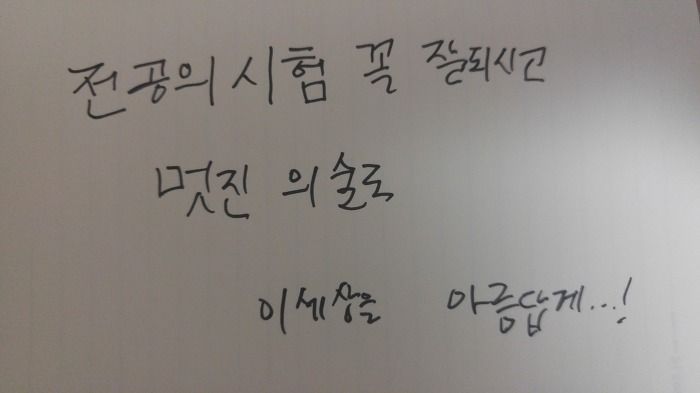 전공의 시험 꼭 잘되시고
멋진 의술로
이세상을 아름답게...!